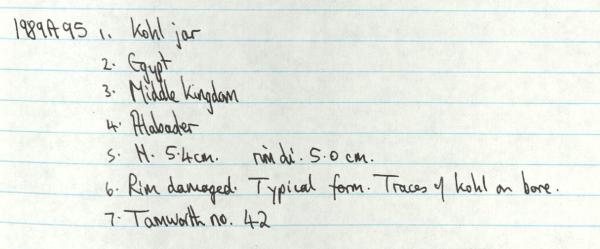 1989A95 1. Kohl jar
2. Egypt
3. Middle Kingdom
4. Alabaster
5. H. 5.4cm. rim di. 5.0 cm.
6. Rim damaged. Typical form. Traces of kohl on bore.
7. Tamworth no. 42